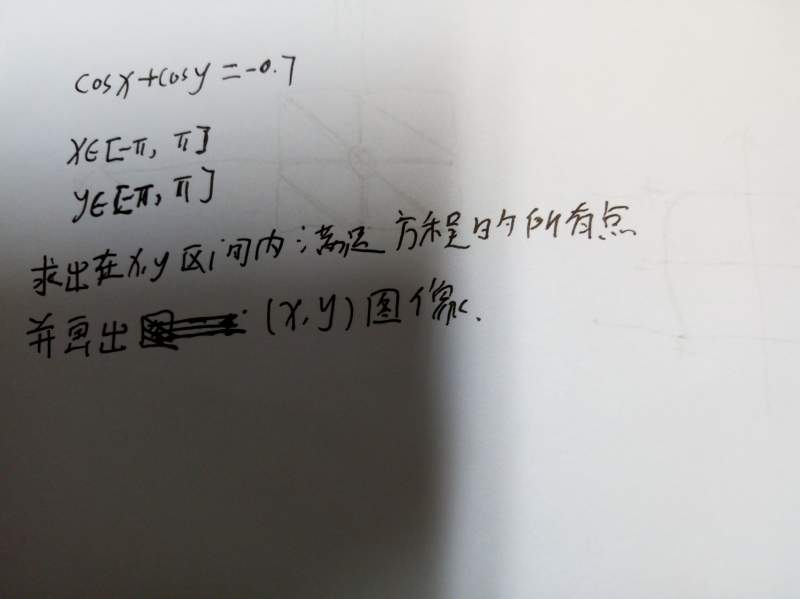 cosx+cosy=-0.7
x∈[-π, π]
y∈[-π, π]
求出在x,y区间内满足方程的所有点
并画出 (x,y)图像.